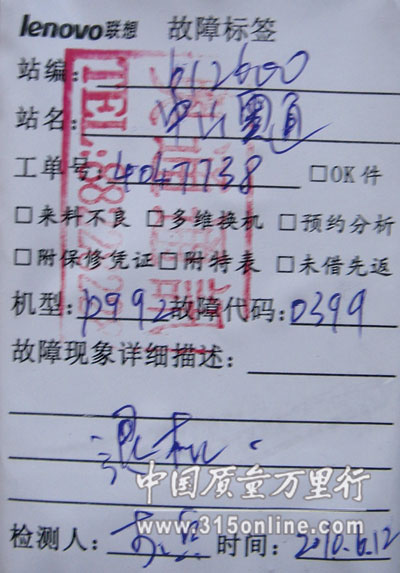 lenovo联想 故障标签
站编: 612600
站名: 中山粤通
工单号: 4047738 □OK件
□来料不良 □多维换机 □预约分析
□附保修凭证 □附特表 □未借先返
机型: P992 故障代码: 0399
故障现象详细描述:
退机.
中国质量万里行
www.315online.com
检测人: 时间: 2010.6.12